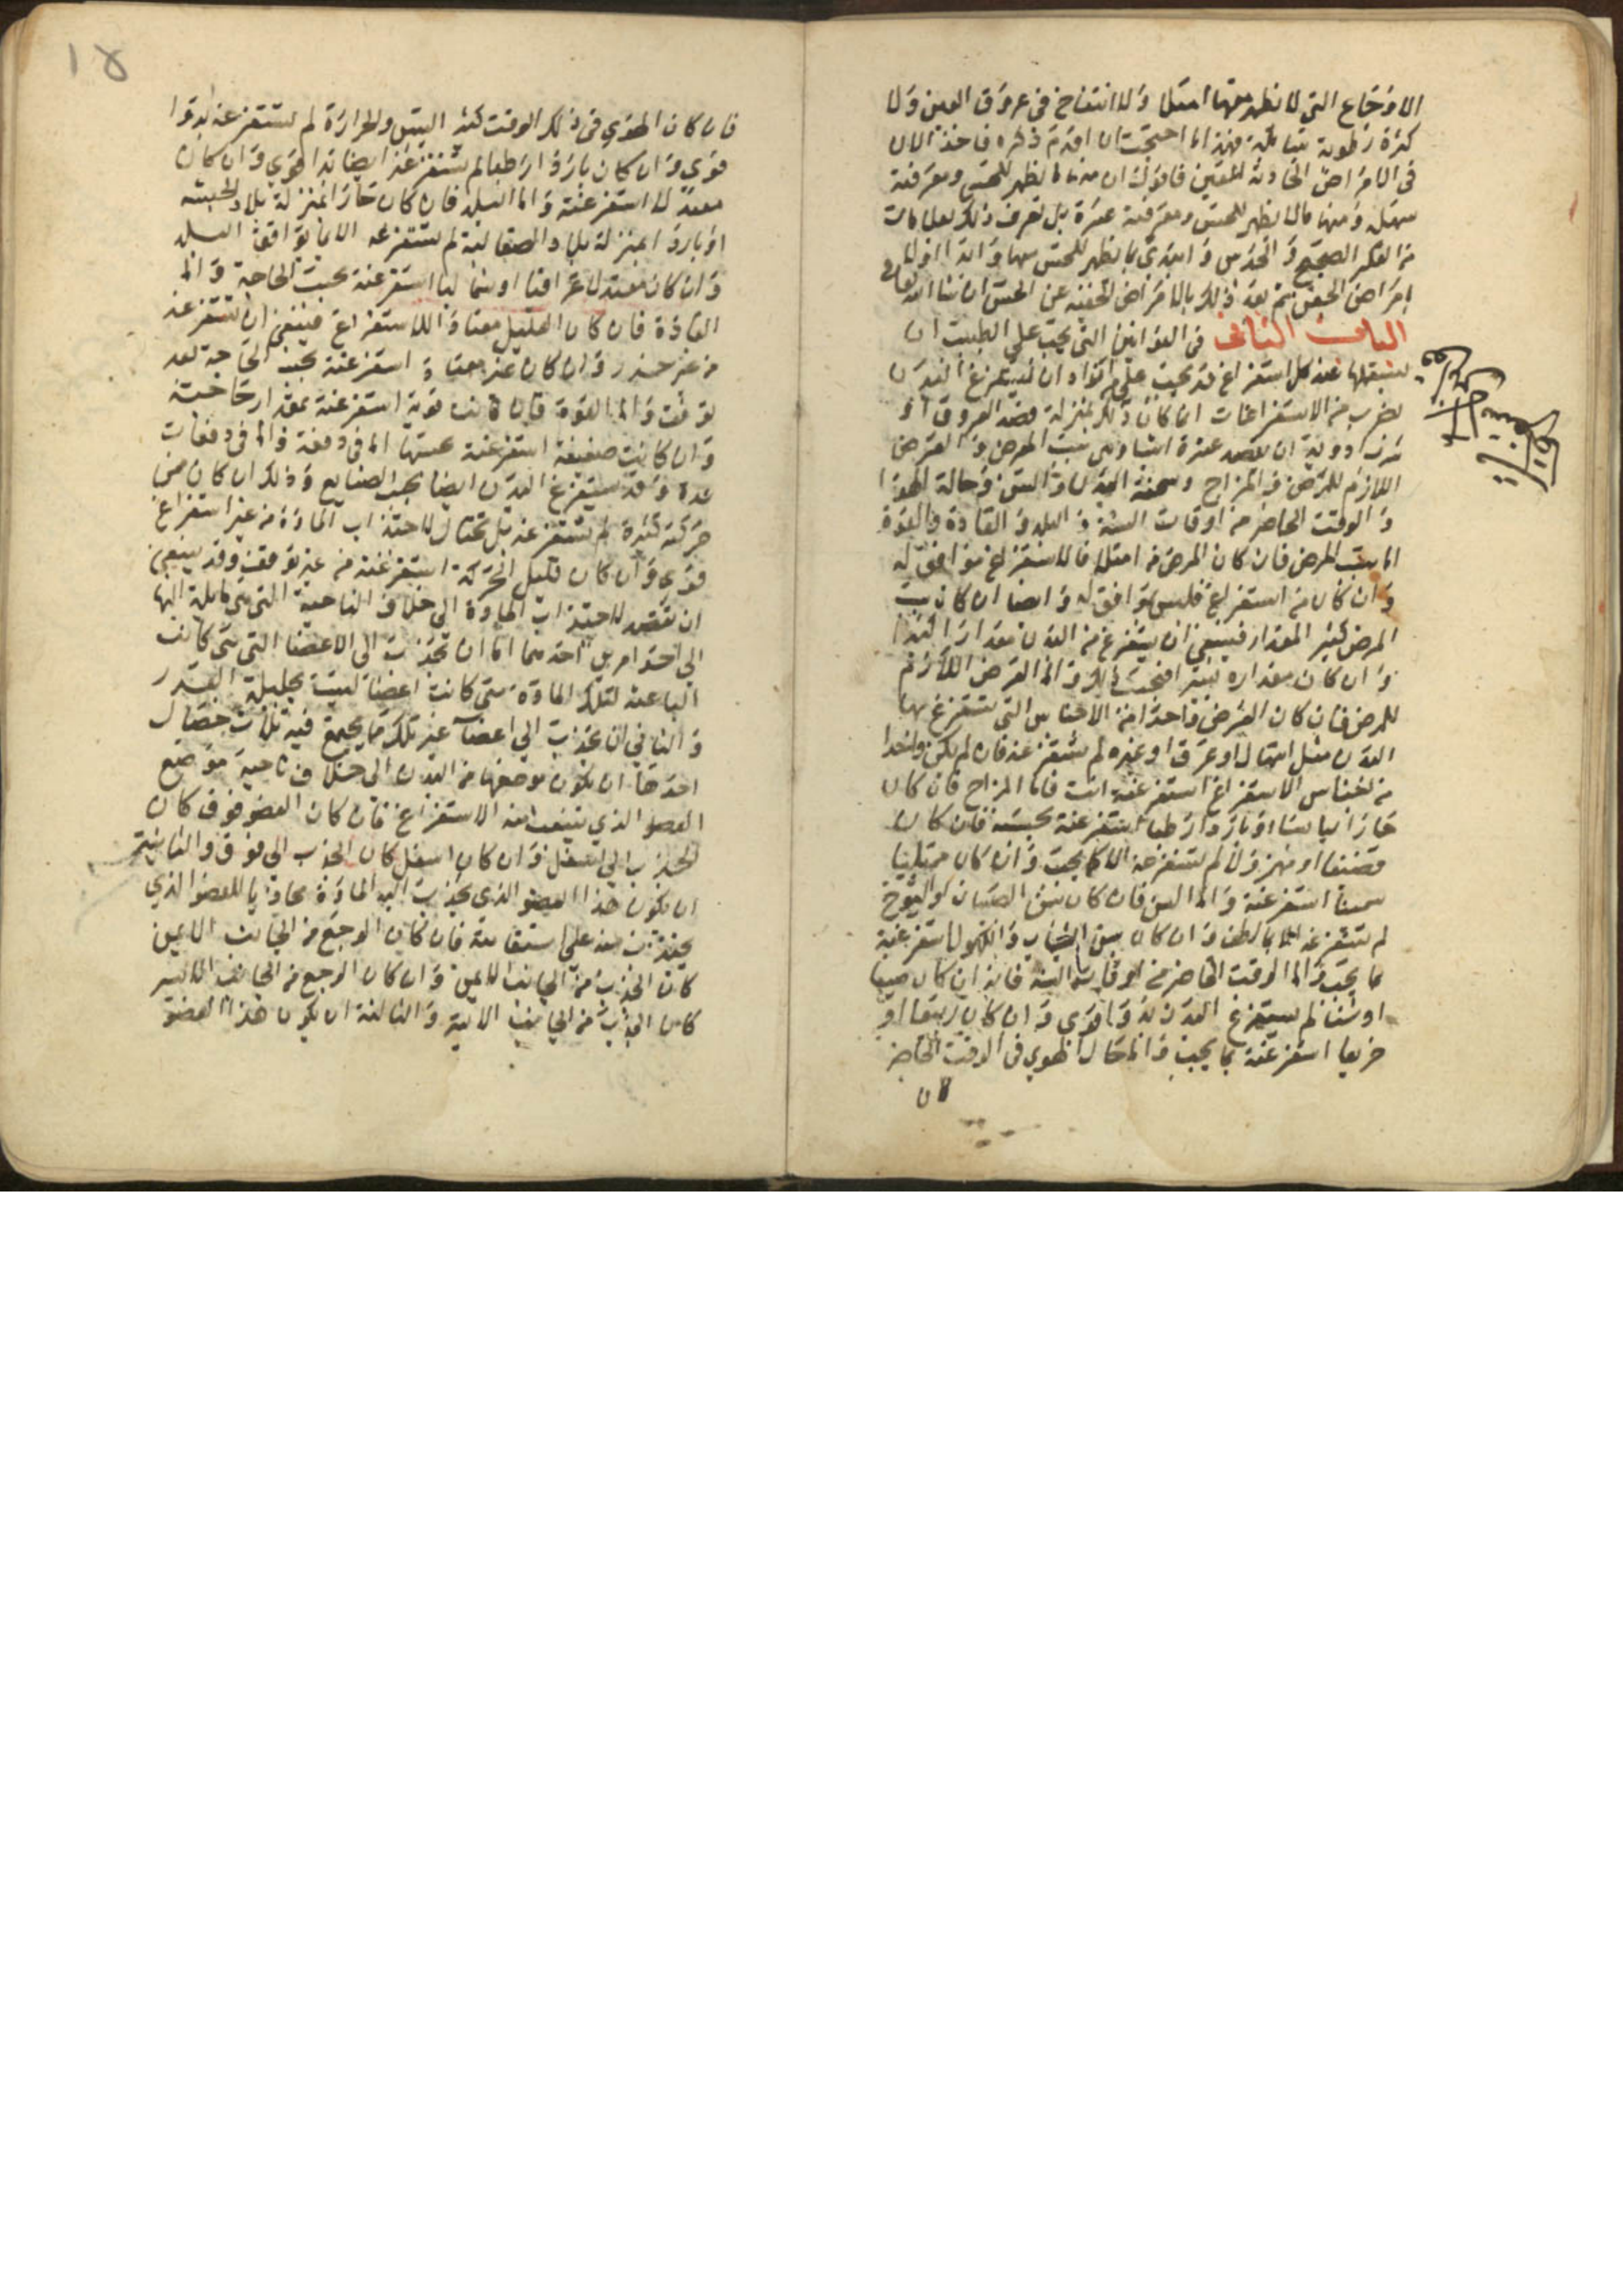 الاوجاع التي لا يظهر معها امتلا ولا انتفاخ في عروق العين ولا
كثرة رطوبة سائلة فهذا ما احتجت ان اقدم ذكره فاخذ الان
في الامراض الحادثة للعين فاقول ان منها ما يظهر للحس ومعرفته
سهلة ومنها ما لا يظهر للحس ومعرفته عسرة بل تعرف ذلك بعلامات
من الفكر الصحيح والحدس وابتدي بما يظهر للحس منها وابدا اولا
بامراض الجفن ثم بعد ذلك بالامراض الخفية عن الحس ان شا الله تعالى
الباب الثاني في القوانين التي يجب على الطبيب ان
يستعملها عند كل استفراغ قد يجب على من اراد ان يستفرغ البدن
بضرب من الاستفراغات ايما كان ذلك بمنزلة فصد العروق او
شرب ادوية ان يقصد عشرة اشيا وهي سبب المرض والعرض
اللازم للمرض والمزاج وسحنة البدن والسن وحالة الهوا
والوقت الحاضر من اوقات السنة والبلد والعادة والقوة
اما سبب المرض فان كان المرض من امتلا فالاستفراغ موافق له
وان كان من استفراغ فليس يوافق له وايضا ان كان سبب
المرض كثير المقدار فينبغي ان يستفرغ من البدن مقدارا كثيرا
وان كان مقداره يسيرا فبحسب ذلك واما العرض اللازم
للمرض فان كان العرض واحدا من الاجناس التي يستفرغ بها
البدن مثل اسهال او عرق او غيره لم يستفرغه فان لم يكن واحدا
من اجناس الاستفراغ استفرغته انت فاما المزاج فان كان
حارا يابسا او باردا رطبا استفرغته بحسبه فان كان
قضيفا او مهزولا لم تستفرغه الا كما يجب وان كان ممتليا
سمينا استفرغته واما السن فان كان سن الصبيان او الشيوخ
لم تستفرغه الا بالطف وان كان سن الشباب والكهول استفرغته
بما يجب واما الوقت الحاضر من اوقات السنة فانه ان كان صيفا
او شتا لم يستفرغ البدن بدوا قوي وان كان ربيعا او
خريفا استفرغته بما يجب واما حال الهوي في الوقت الحاضر
١٨
فان كان الهوي في ذلك الوقت كثير اليبس والحرارة لم تستفرغه بدوا
قوي وان كان باردا رطبا لم تستفرغه ايضا بدوا قوي وان كان
معتدلا استفرغته واما البلد فان كان حارا بمنزلة بلاد الحبشة
او باردا بمنزلة بلاد الصقالبة لم تستفرغه الا بما يوافق البلد
وان كان معتدلا عراقيا او شماليا استفرغته بحسب الحاجة واما
العادة فان كان العليل معتادا للاستفراغ فينبغي ان تستفرغه
من غير حذر وان كان غير معتاد استفرغته بحسب الحاجة بعد
توقف واما القوة فان كانت قوية استفرغته بمقدار حاجته
وان كانت ضعيفة استفرغته بحسبها اما في دفعة واما في دفعات
عدة وقد يستفرغ البدن ايضا بحسب الصنايع وذلك ان كان ممن
حركته كثيرة لم تستفرغه بل تحتال لاجتذاب المادة من غير استفراغ
قوي وان كان قليل الحركة استفرغته من غير توقف وقد ينبغي
ان تقصد لاجتذاب المادة الى خلاف الناحية التي هي مايلة اليها
الى احد امرين احدهما اما ان تجذب الى الاعضا التي هي كانت
الباعثة لتلك المادة متى كانت اعضا ليست بجليلة القدر
والثاني ان تجذب الى اعضا غير تلك مما يجتمع فيه ثلاث خصال
احدها ان يكون موضعها من البدن الى خلاف ناحية موضع
العضو الذي ينبعث منه الاستفراغ فان كان العضو فوق كان
الجذب الى اسفل وان كان اسفل كان الجذب الى فوق والثانية
ان يكون هذا العضو الذي يجذب اليه المادة محاذيا للعضو الذي
يجتذب منه على استقامة فان كان الوجع من الجانب الايمن
كان الجذب من الجانب الايمن وان كان الوجع من الجانب الايسر
كان الجذب من الجانب الايسر والثالثة ان يكون هذا العضو